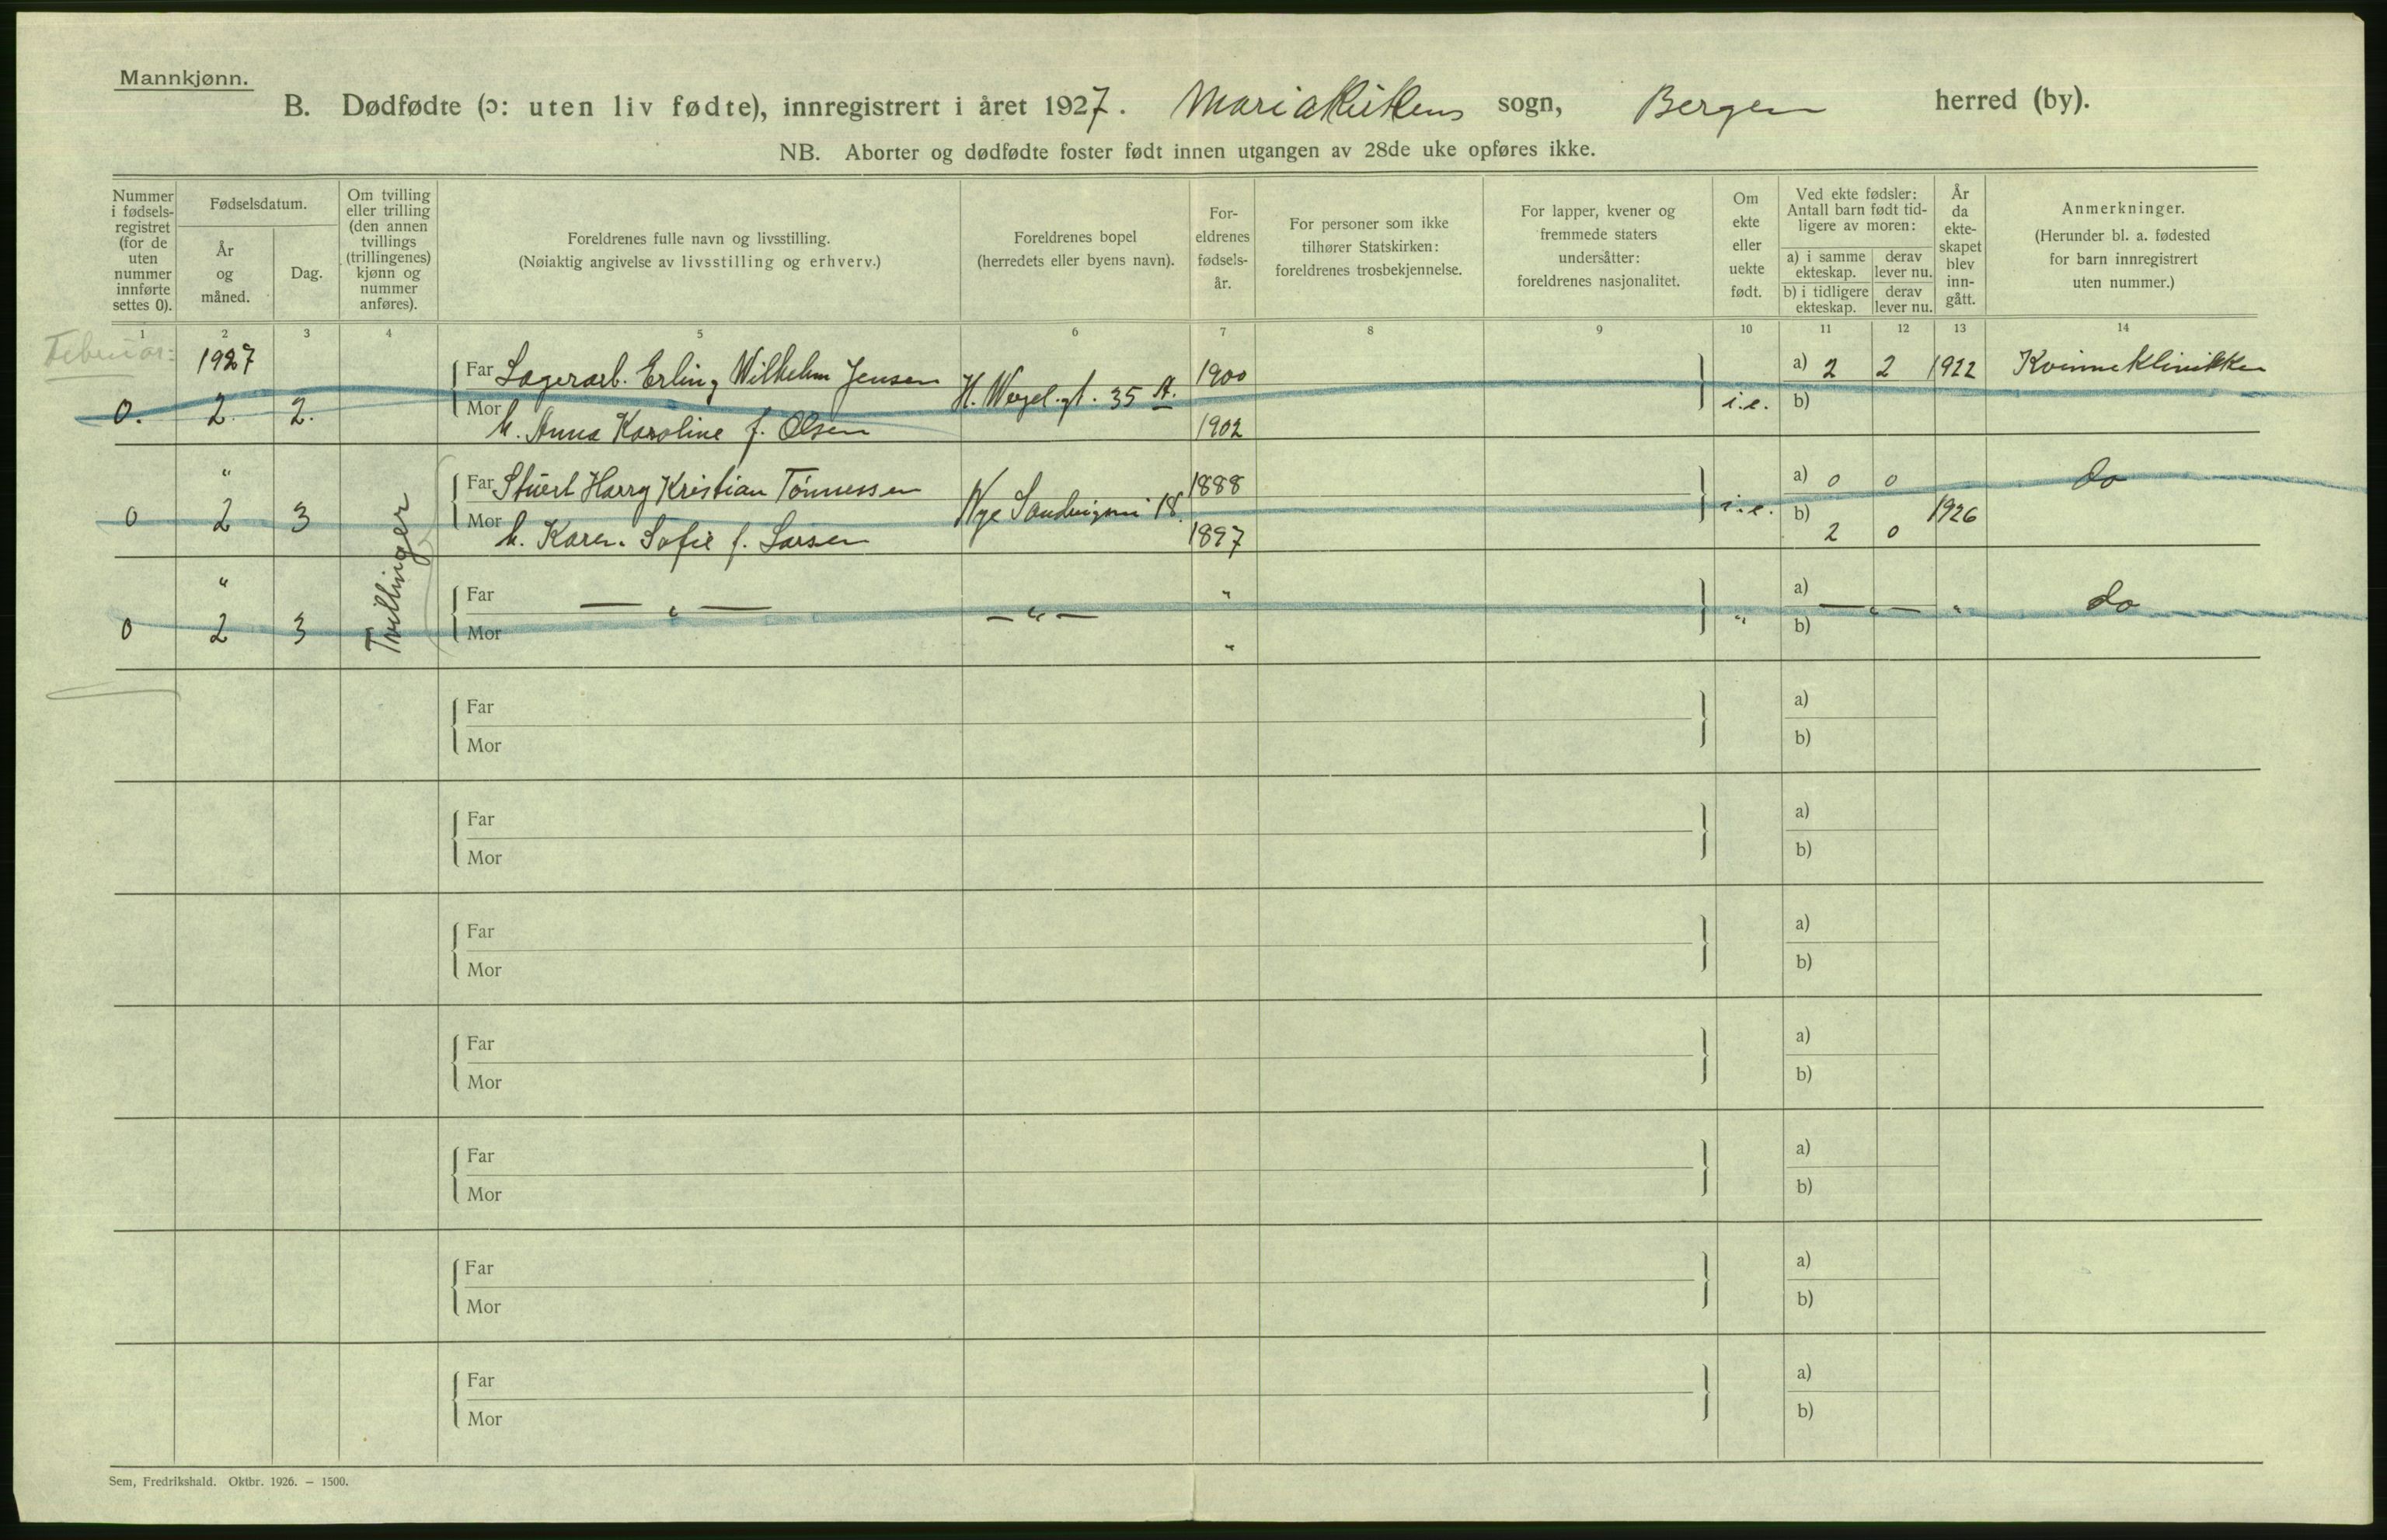 Mannkjønn.
B. Dødfødte (ɔ: uten liv fødte), innregistrert i året 1927. Mariakirkens sogn, Bergen herred (by).
NB. Aborter og dødfødte foster født innen utgangen av 28de uke opføres ikke.
Nummer i fødsels-registret (for de uten nummer innførte settes 0).
Fødselsdatum.
År og måned.
Dag.
Om tvilling eller trilling (den annen tvillings (trillingenes) kjønn og nummer anføres).
Foreldrenes fulle navn og livsstilling.
(Nøiaktig angivelse av livsstilling og erhverv.)
Foreldrenes bopel
(herredets eller byens navn).
For-eldrenes fødsels-år.
For personer som ikke tilhører Statskirken: foreldrenes trosbekjennelse.
For lapper, kvener og fremmede staters undersåtter: foreldrenes nasjonalitet.
Om ekte eller uekte født.
Ved ekte fødsler: Antall barn født tid-ligere av moren:
a) i samme ekteskap.
derav lever nu.
b) i tidligere ekteskap.
derav lever nu.
År da ekte-skapet blev inn-gått.
Anmerkninger.
(Herunder bl. a. fødested for barn innregistrert uten nummer.)
1 2 3 4 5 6 7 8 9 10 11 12 13 14
Februar:
1927
Far Lagerarb. Erling Wilhelm Jensen 1900 a) 2 2 1922 Kvinneklinikken
0. 2. 2. H. Wergel.gt. 35 A. i.e. b)
Mor h. Anna Karoline f. Olsen 1902
"
Far Stuert Harry Kristian Tønnessen 1888 a) 0 0 do
0 2 3 Nye Sandvigsvei 18. i.e. b) 1926
Mor h. Karen Sofie f. Larsen 1897 2 0
Tvillinger
"
Far — " — " a) — " — " do
0 2 3 — " — "
Mor " b)
Far a)
Mor b)
Far a)
Mor b)
Far a)
Mor b)
Far a)
Mor b)
Far a)
Mor b)
Far a)
Mor b)
Far a)
Mor b)
Sem, Fredrikshald. Oktbr. 1926. – 1500.